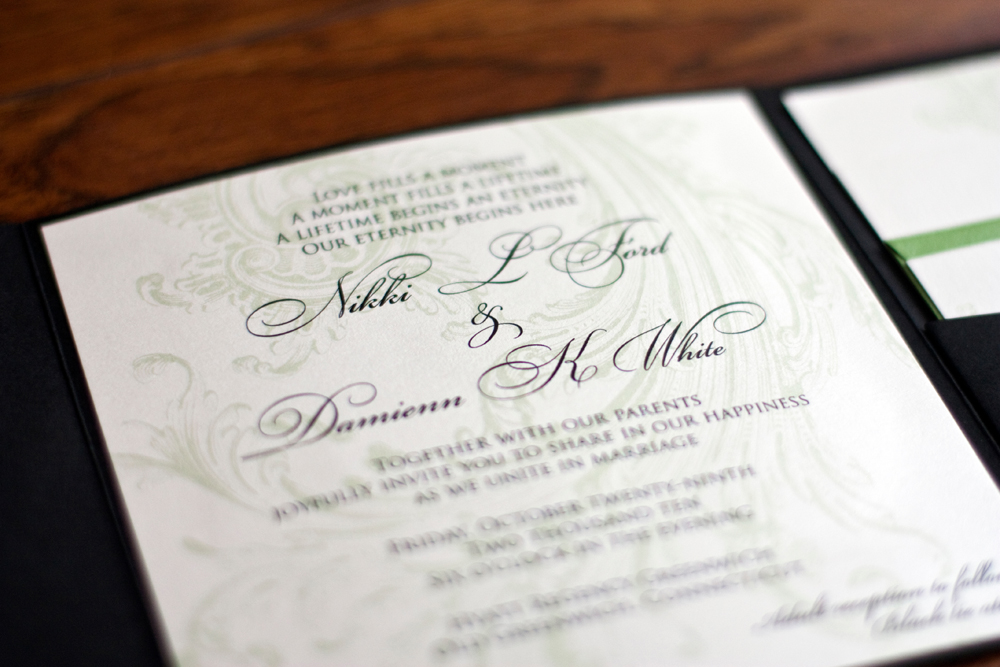 LOVE FILLS A MOMENT
A MOMENT FILLS A LIFETIME
A LIFETIME BEGINS AN ETERNITY
OUR ETERNITY BEGINS HERE
Nikki L Ford
&
Damienn K White
TOGETHER WITH OUR PARENTS
JOYFULLY INVITE YOU TO SHARE IN OUR HAPPINESS
AS WE UNITE IN MARRIAGE
FRIDAY, OCTOBER TWENTY-NINTH
TWO THOUSAND TEN
SIX O'CLOCK IN THE EVENING
HYATT REGENCY GREENWICH
OLD GREENWICH, CONNECTICUT
Adult reception to follow
Black tie